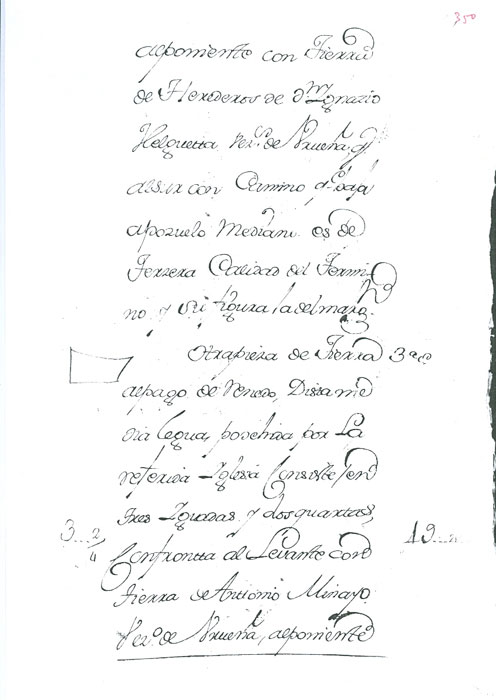 350
alponiente con Tierra
de Herederos de Dn Ignazio
Helguetta Vezº. de Vrueña, y
alsur con Camino q. baja
apozuelo Mediani es de
Terzera Calidad del Termi-
no, y su figura, la del marg.
Otrapieza de Tierra 3ª c
alpago de Venedo, Dista me
dia legua, poyehida por La
referida Iglesia Consiste en
tres Iguadas y dos quartas,
3... 2/4
19...
Confronta al Levante con
tierra de Antonio Minayo
Vezº. de Vrueña, alponiente